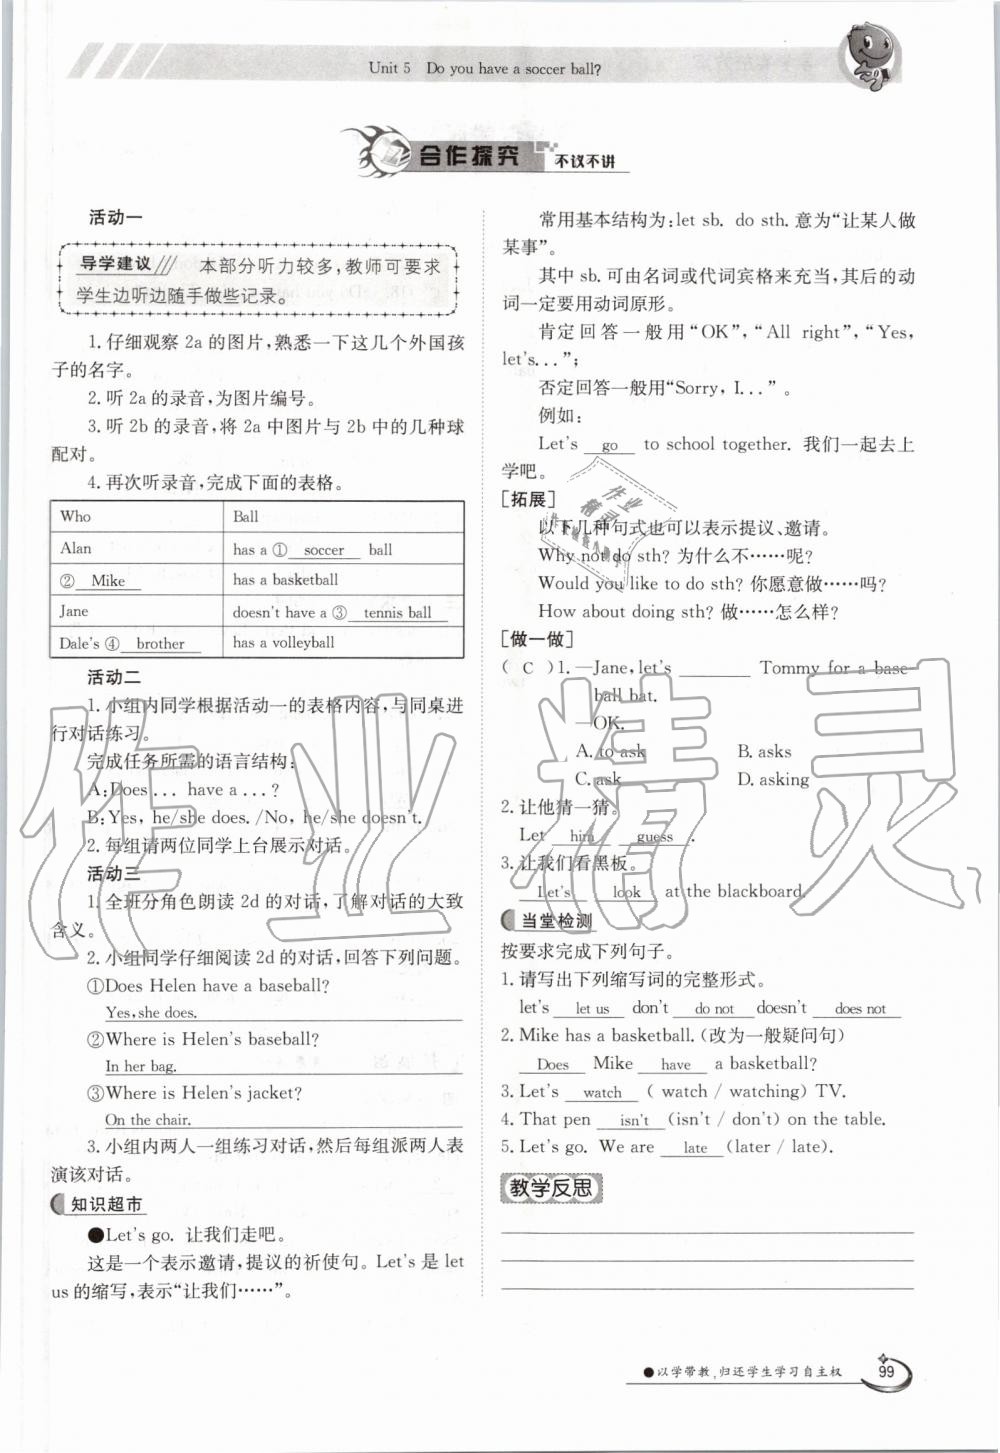 Unit 5 Do you have a soccer ball?
合作探究 不议不讲
活动一
导学建议/// 本部分听力较多,教师可要求
学生边听边随手做些记录。
1.仔细观察 2a 的图片,熟悉一下这几个外国孩
子的名字。
2.听 2a 的录音,为图片编号。
3.听 2b 的录音,将 2a 中图片与 2b 中的几种球
配对。
4.再次听录音,完成下面的表格。
Who Ball
Alan has a ① soccer ball
② Mike has a basketball
Jane doesn't have a ③ tennis ball
Dale's ④ brother has a volleyball
活动二
1.小组内同学根据活动一的表格内容,与同桌进
行对话练习。
完成任务所需的语言结构:
A:Does... have a...?
B:Yes, he/she does. /No, he/she doesn't.
2.每组请两位同学上台展示对话。
活动三
1.全班分角色朗读 2d 的对话,了解对话的大致
含义。
2.小组同学仔细阅读 2d 的对话,回答下列问题。
①Does Helen have a baseball?
Yes,she does.
②Where is Helen's baseball?
In her bag.
③Where is Helen's jacket?
On the chair.
3.小组内两人一组练习对话,然后每组派两人表
演该对话。
知识超市
●Let's go. 让我们走吧。
这是一个表示邀请,提议的祈使句。Let's 是 let
us 的缩写,表示“让我们……”。
常用基本结构为:let sb. do sth. 意为“让某人做
某事”。
其中 sb. 可由名词或代词宾格来充当,其后的动
词一定要用动词原形。
肯定回答一般用“OK”,“All right”,“Yes,
let's...”;
否定回答一般用“Sorry, I...”。
例如:
Let's go to school together. 我们一起去上
学吧。
[拓展]
以下几种句式也可以表示提议、邀请。
Why not do sth? 为什么不……呢?
Would you like to do sth? 你愿意做……吗?
How about doing sth? 做……怎么样?
[做一做]
( C )1. —Jane, let's ________ Tommy for a base-
ball bat.
—OK.
A. to ask B. asks
C. ask D. asking
2.让他猜一猜。
Let him guess .
3.让我们看黑板。
Let's look at the blackboard.
当堂检测
按要求完成下列句子。
1.请写出下列缩写词的完整形式。
let's let us don't do not doesn't does not
2. Mike has a basketball. (改为一般疑问句)
Does Mike have a basketball?
3. Let's watch ( watch / watching) TV.
4. That pen isn't (isn't / don't) on the table.
5. Let's go. We are late (later / late).
教学反思
●以学带教,归还学生学习自主权
99
作业精灵